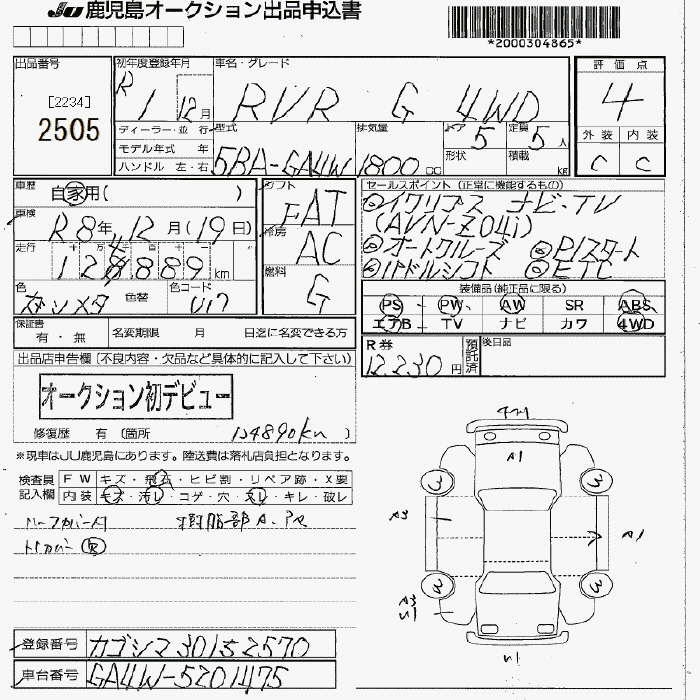 JU鹿児島オークション出品申込書
*2000304865*
出品番号
[2234]
2505
初年度登録年月
R 1 12月
車名・グレード
RVR G 4WD
評価点
4
外装 内装
C C
ディーラー・並 行
モデル年式 年
ハンドル 左・右
型式
5BA-GA4W
排気量
1800 cc
ドア 5
形状
定員 5人
積載 kg
車歴
自家用( )
車検
R8年12月(19日)
走行
十 万 千 百 十 一
km
色
色替
色コード
U17
シフト
FAT
冷房
AC
燃料
G
セールスポイント (正常に機能するもの)
①イクリプス ナビ・TV
(AVN-Z04i)
オートクルーズ
P/スタート
パドルシフト
ETC
装備品(純正品に限る)
PS PW AW SR ABS
エアB TV ナビ カワ 4WD
保証書
有・無
名変期限 月 日迄に名変できる方
R券
12,230円
預託済
後日品
出品店申告欄(不良内容・欠品など具体的に記入して下さい)
オークション初デビュー
修復歴 有(箇所 )
134890km
※現車はJU鹿児島にあります。陸送費は落札店負担となります。
検査員記入欄
FW キズ・飛石・ヒビ割・リペア跡・X要
内装 キズ・汚レ・コゲ・穴・スレ・キレ・破レ
ハーフカバー
樹脂部A.
A1
3
3
A3
A1
3
3
登録番号 カゴシマ301す2570
車台番号 GA4W-5201475